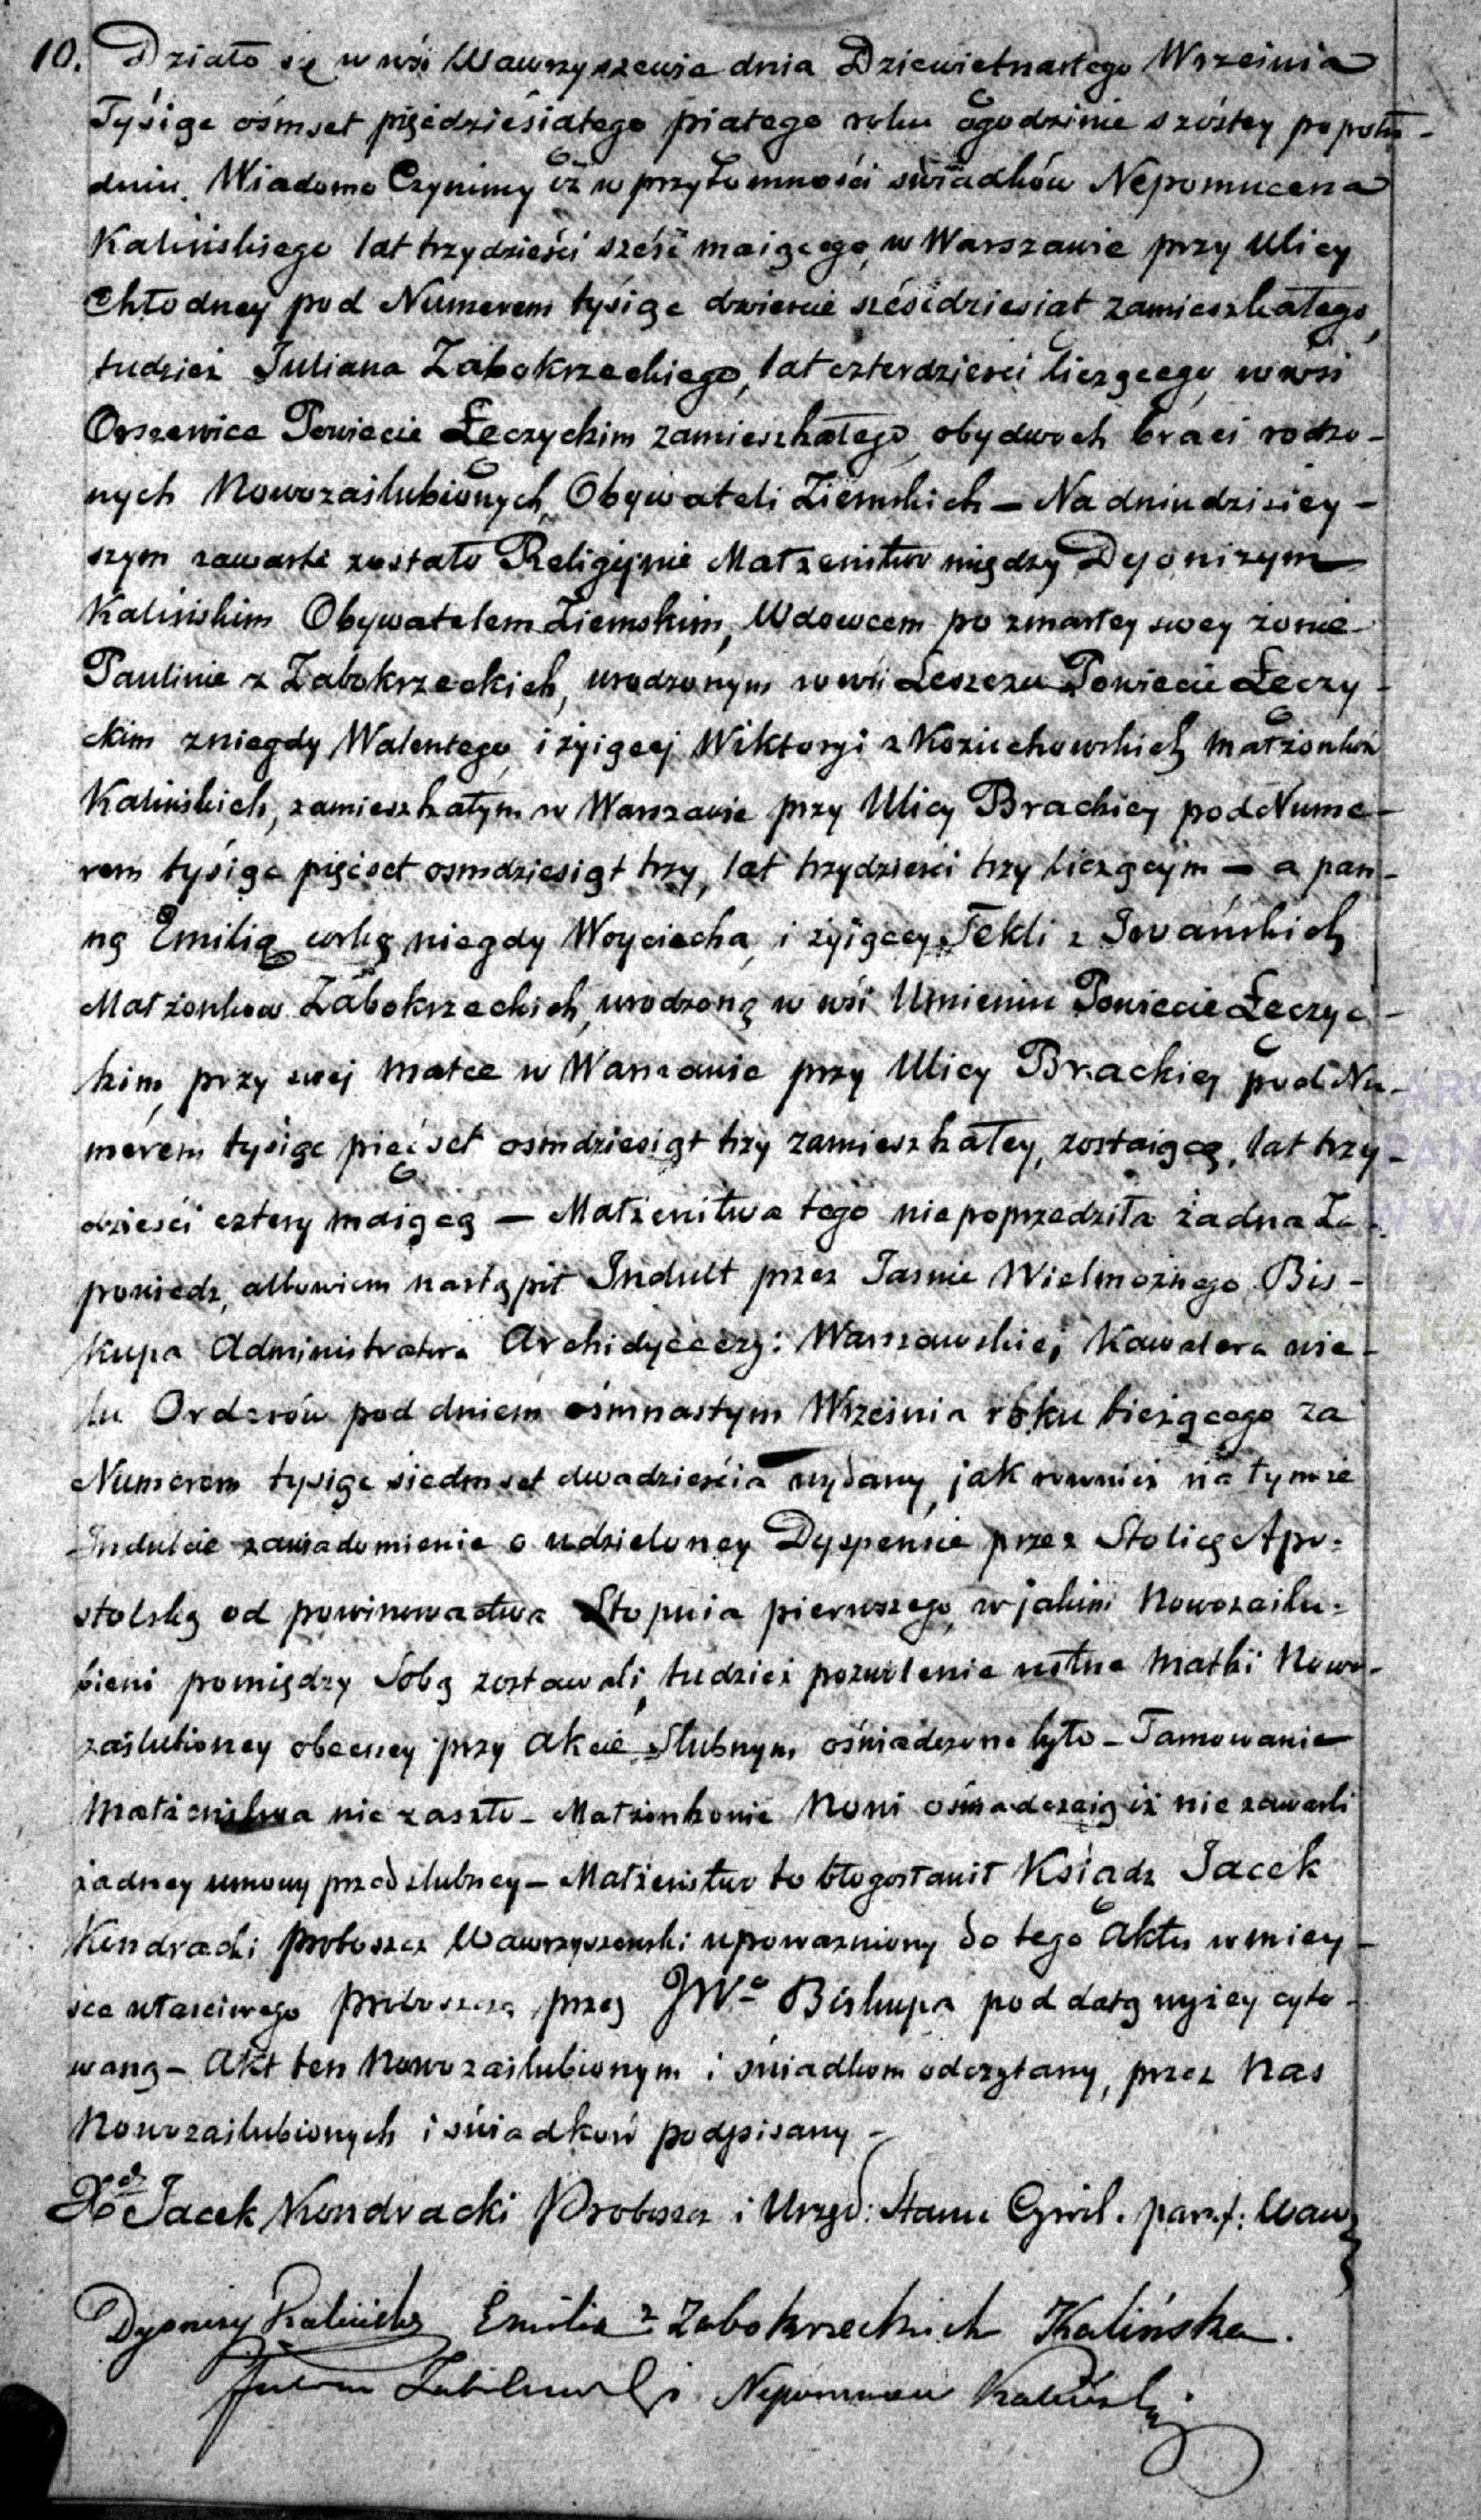 10. Działo się w wsi Wawrzyszewie dnia Dziewietnastego Wrzeinia
Tysiąc ośmset pięćdziesiatego piatego roku ogodzinie szóstey popołu-
dniu. Wiadomo Czynimy iż w przytomności świadków Nepomucena
Kalińskiego lat trzydzieści sześć maiącego, w Warszawie przy Ulicy
Chłodney pod Numerem tysiąc dwieście sześćdziesiat zamieszkałego,
tudzież Juliana Zabokrzeckiego, lat czterdzieści liczącego, w wsi
Orszewice Powiecie Łęczyckim zamieszkałego, obydwoch braci rodzo-
nych Nowozaślubionych, Obywateli Ziemskich – Na dniu dzisiey-
szym zawarte zostało Religijnie Małżeństwo między Dyonizym
Kalińskim Obywatelem Ziemskim, Wdowcem po zmarłey swey żonie
Paulinie z Zabokrzeckich, urodzonym w wsi Leszcze Powiecie Łęczy-
ckim z niegdy Walentego, i żyiącej Wiktoryi z Koziuchowskich Małżonków
Kalińskich, zamieszkałym w Warszawie przy Ulicy Brackiey pod Nume-
rem tysiąc pięćset osmdziesiąt trzy, lat trzydzieści trzy liczącym – a pan-
ną Emilią corką niegdy Woyciecha, i żyiącey Tekli z Iwańskich
Małżonków Zabokrzeckich, urodzoną w wsi Umieniu Powiecie Łęczyc-
kim, przy swej Matce w Warszawie przy Ulicy Brackiey pod Nu-
merem tysiąc pięćset osmdziesiąt trzy zamieszkałey, zostaiącą, lat trzy-
dzieści cztery maiącą – Małżeństwa tego niepoprzedziła żadna Za-
powiedz, albowiem nastąpił Indult przez Jasnie Wielmożnego Bis-
kupa Administratora Archidyecezy: Warszawskiej Kawalera wie-
lu Orderów pod dniem ośmnastym Wrzeinia roku bieżącego za
Numerem tysiąc siedmset dwadzieścia wydany, jak rownież na tymże
Indulcie zawiadomienie o udzieloney Dyspensie przez Stolicę Apo-
stolską od powinowactwa Stopnia pierwszego, w jakim Nowozaślu-
bieni pomiędzy Sobą zostawali, tudzież pozwolenie ustne Matki Nowo-
zaślubioney obecney przy Akcie Slubnym oświadczone było – Tamowanie
Małżeństwa nie zaszło – Małżonkowie Nowi oświadczaią iż nie zawarli
żadney umowy przedślubney – Małżeństwo to błogosławił Ksiądz Jacek
Kondracki proboszcz Wawrzyszewski upoważniony do tego Aktu w miey-
sce właściwego proboszcza przez JWo Biskupa pod datą wyżey cyto-
waną – Akt ten Nowozaślubionym i świadkom odczytany, przez Nas
Nowozaślubionych i świadków podpisany –
Xdz Jacek Kondracki Proboszcz i Urzęd: Stanu Cywil. paraf: Waw
Dyonizy Kaliński Emilia z Zabokrzeckich Kalińska.
Julian Zabokrzecki Nepomucen Kaliński